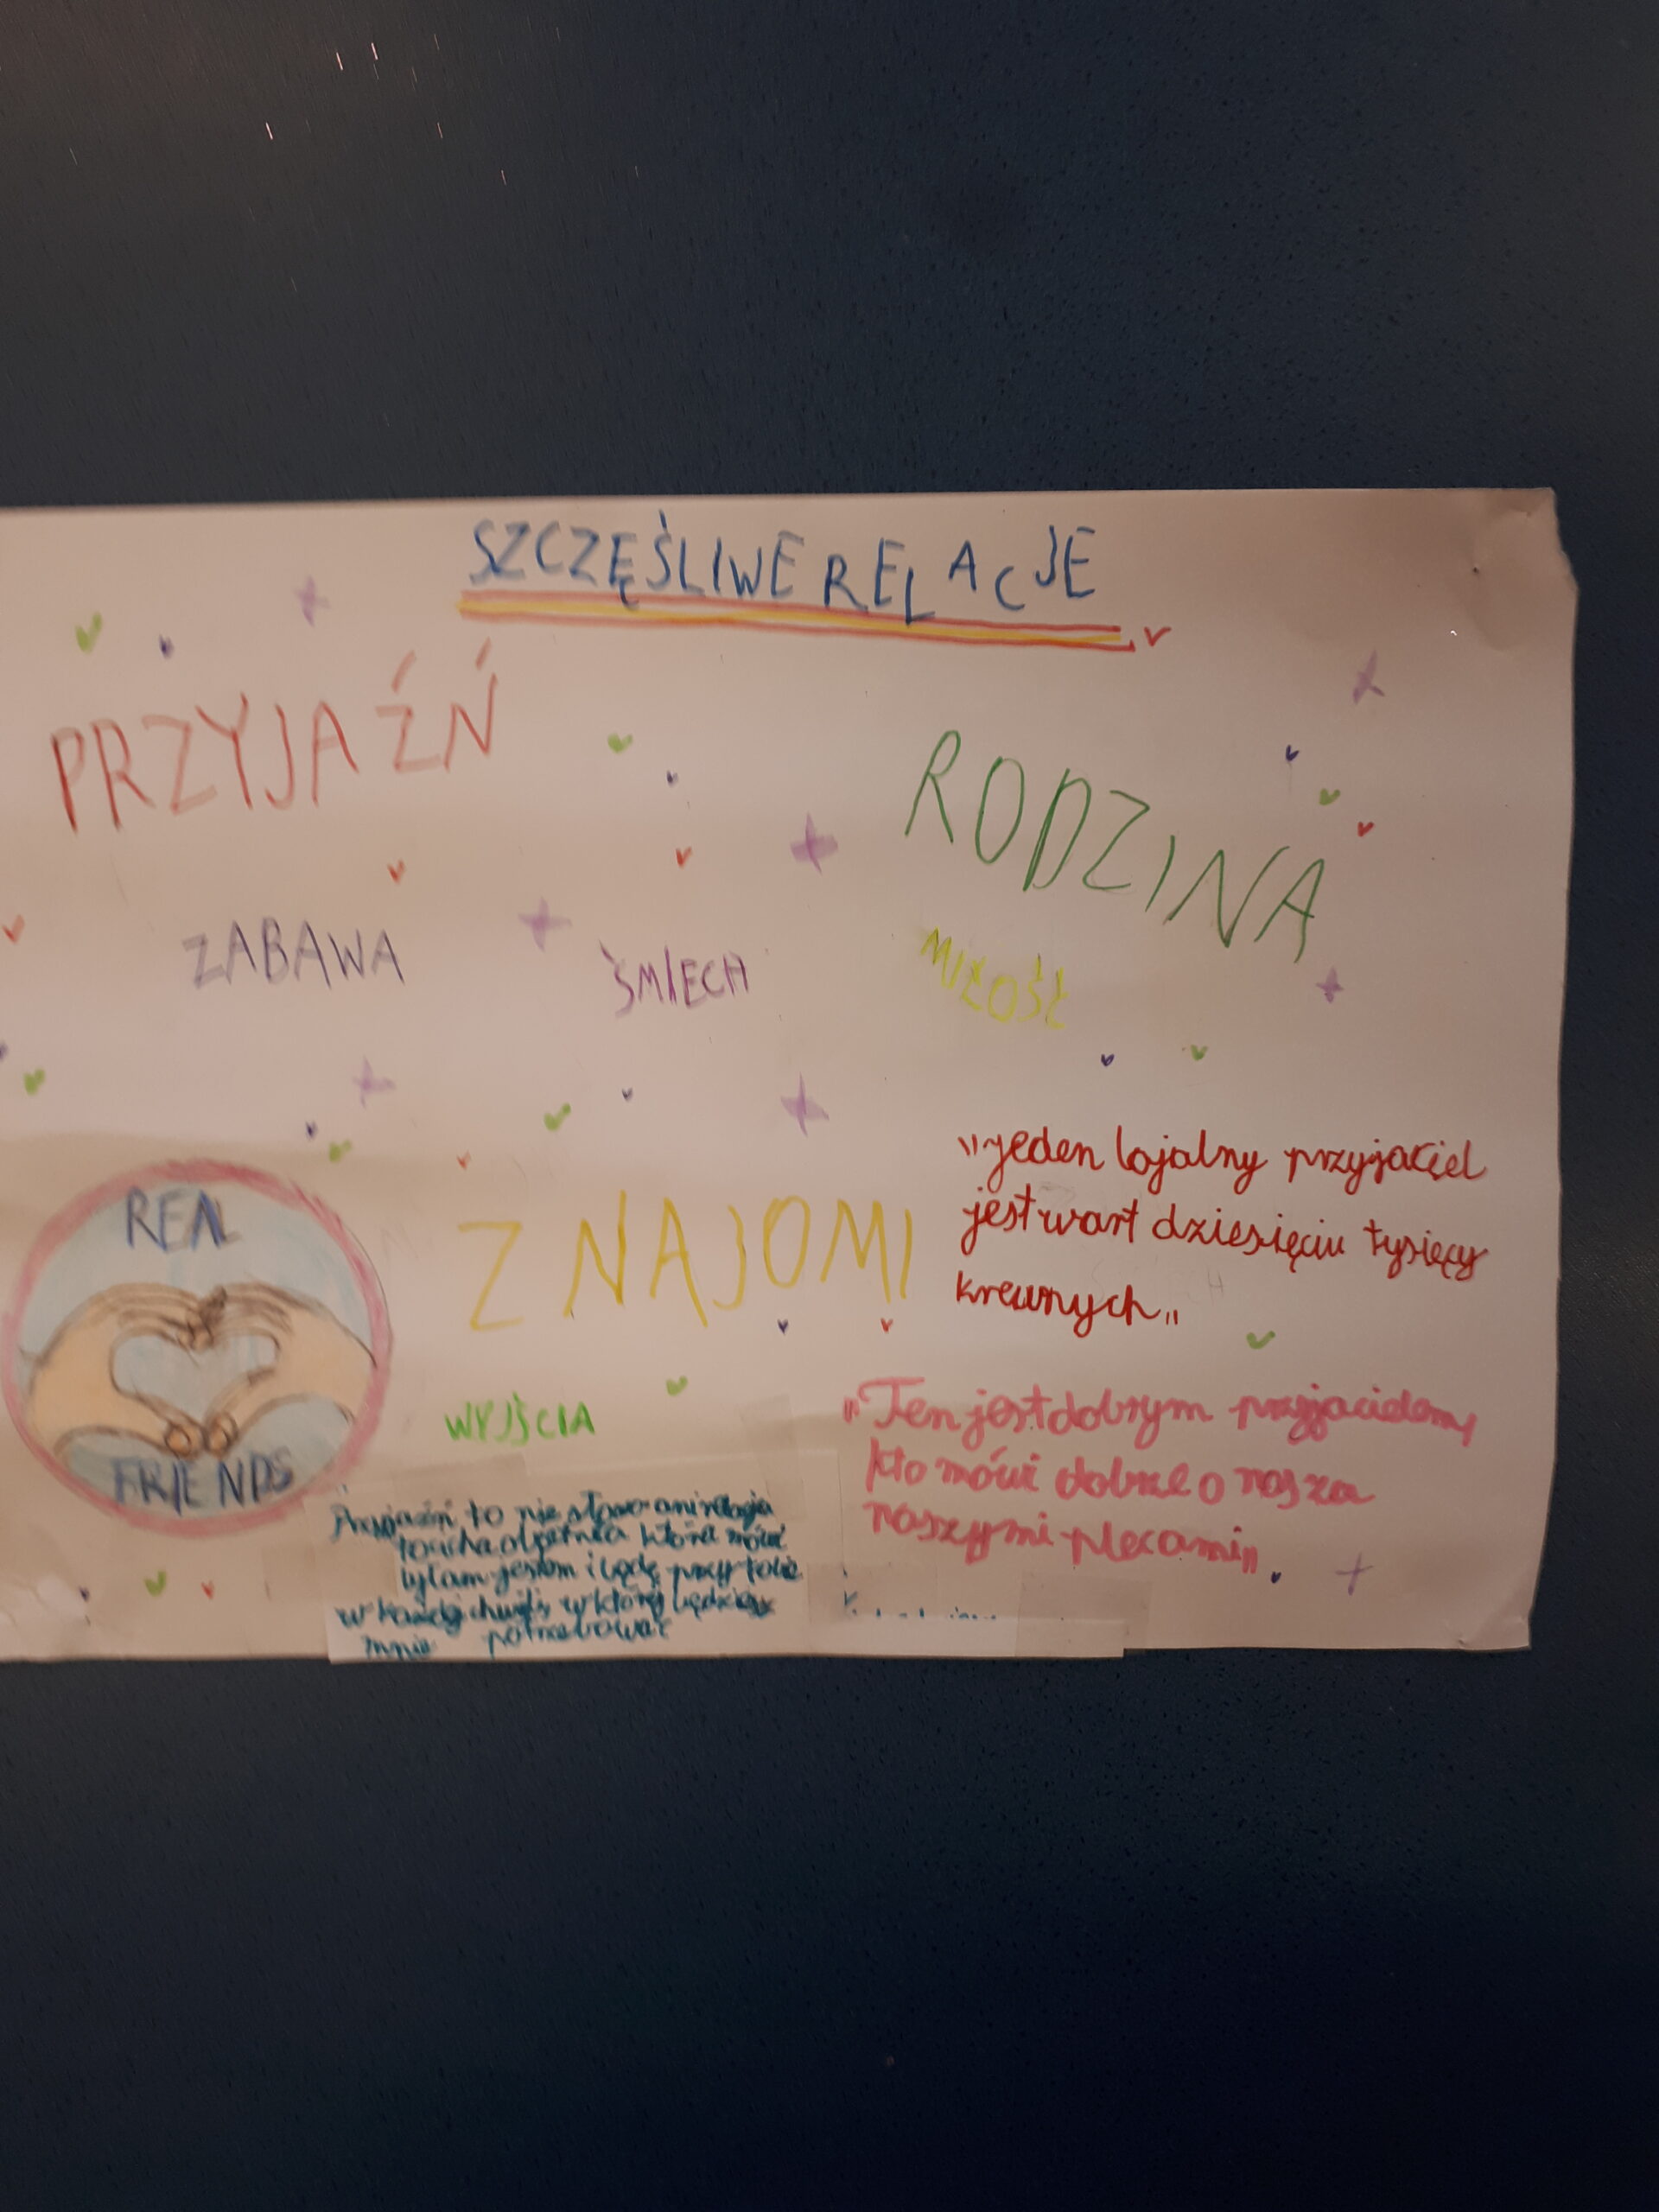 SZCZĘŚLIWE RELACJE
PRZYJAŹŃ
RODZINA
ZABAWA
ŚMIECH
MIŁOŚĆ
REAL
FRIENDS
ZNAJOMI
WYJŚCIA
"jeden lojalny przyjaciel
jest wart dziesięciu tysięcy
krewnych"
"Ten jest dobrym przyjacielem,
kto mówi dobrze o nas za
naszymi plecami"
Przyjaźń to nie słowo ani relacja
to cicha obietnica która mówi
byłam jestem i będę przy tobie
w każdej chwili w której będziesz
mnie potrzebować